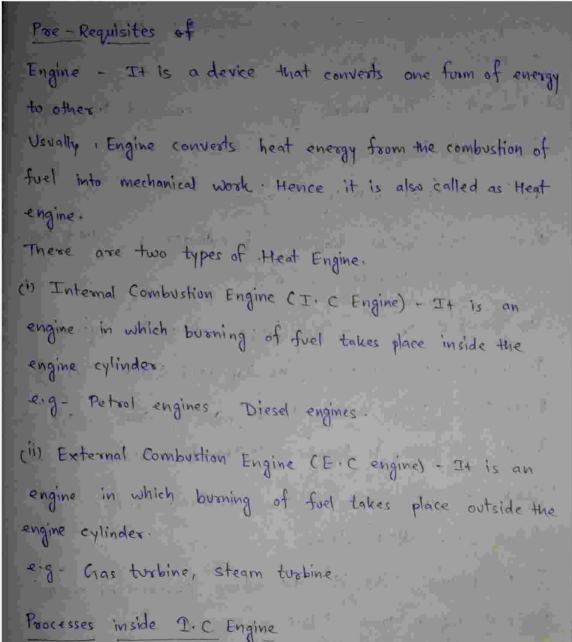 Pre-Requisites of
Engine - It is a device that converts one form of energy
to other.
Usually, Engine converts heat energy from the combustion of
fuel into mechanical work. Hence it is also called as Heat
engine.
There are two types of Heat Engine.
(i) Internal Combustion Engine (I.C Engine) - It is an
engine in which burning of fuel takes place inside the
engine cylinder.
e.g- Petrol engines, Diesel engines.
(ii) External Combustion Engine (E.C engine) - It is an
engine in which burning of fuel takes place outside the
engine cylinder.
e.g- Gas turbine, steam turbine.
Processes inside I.C Engine